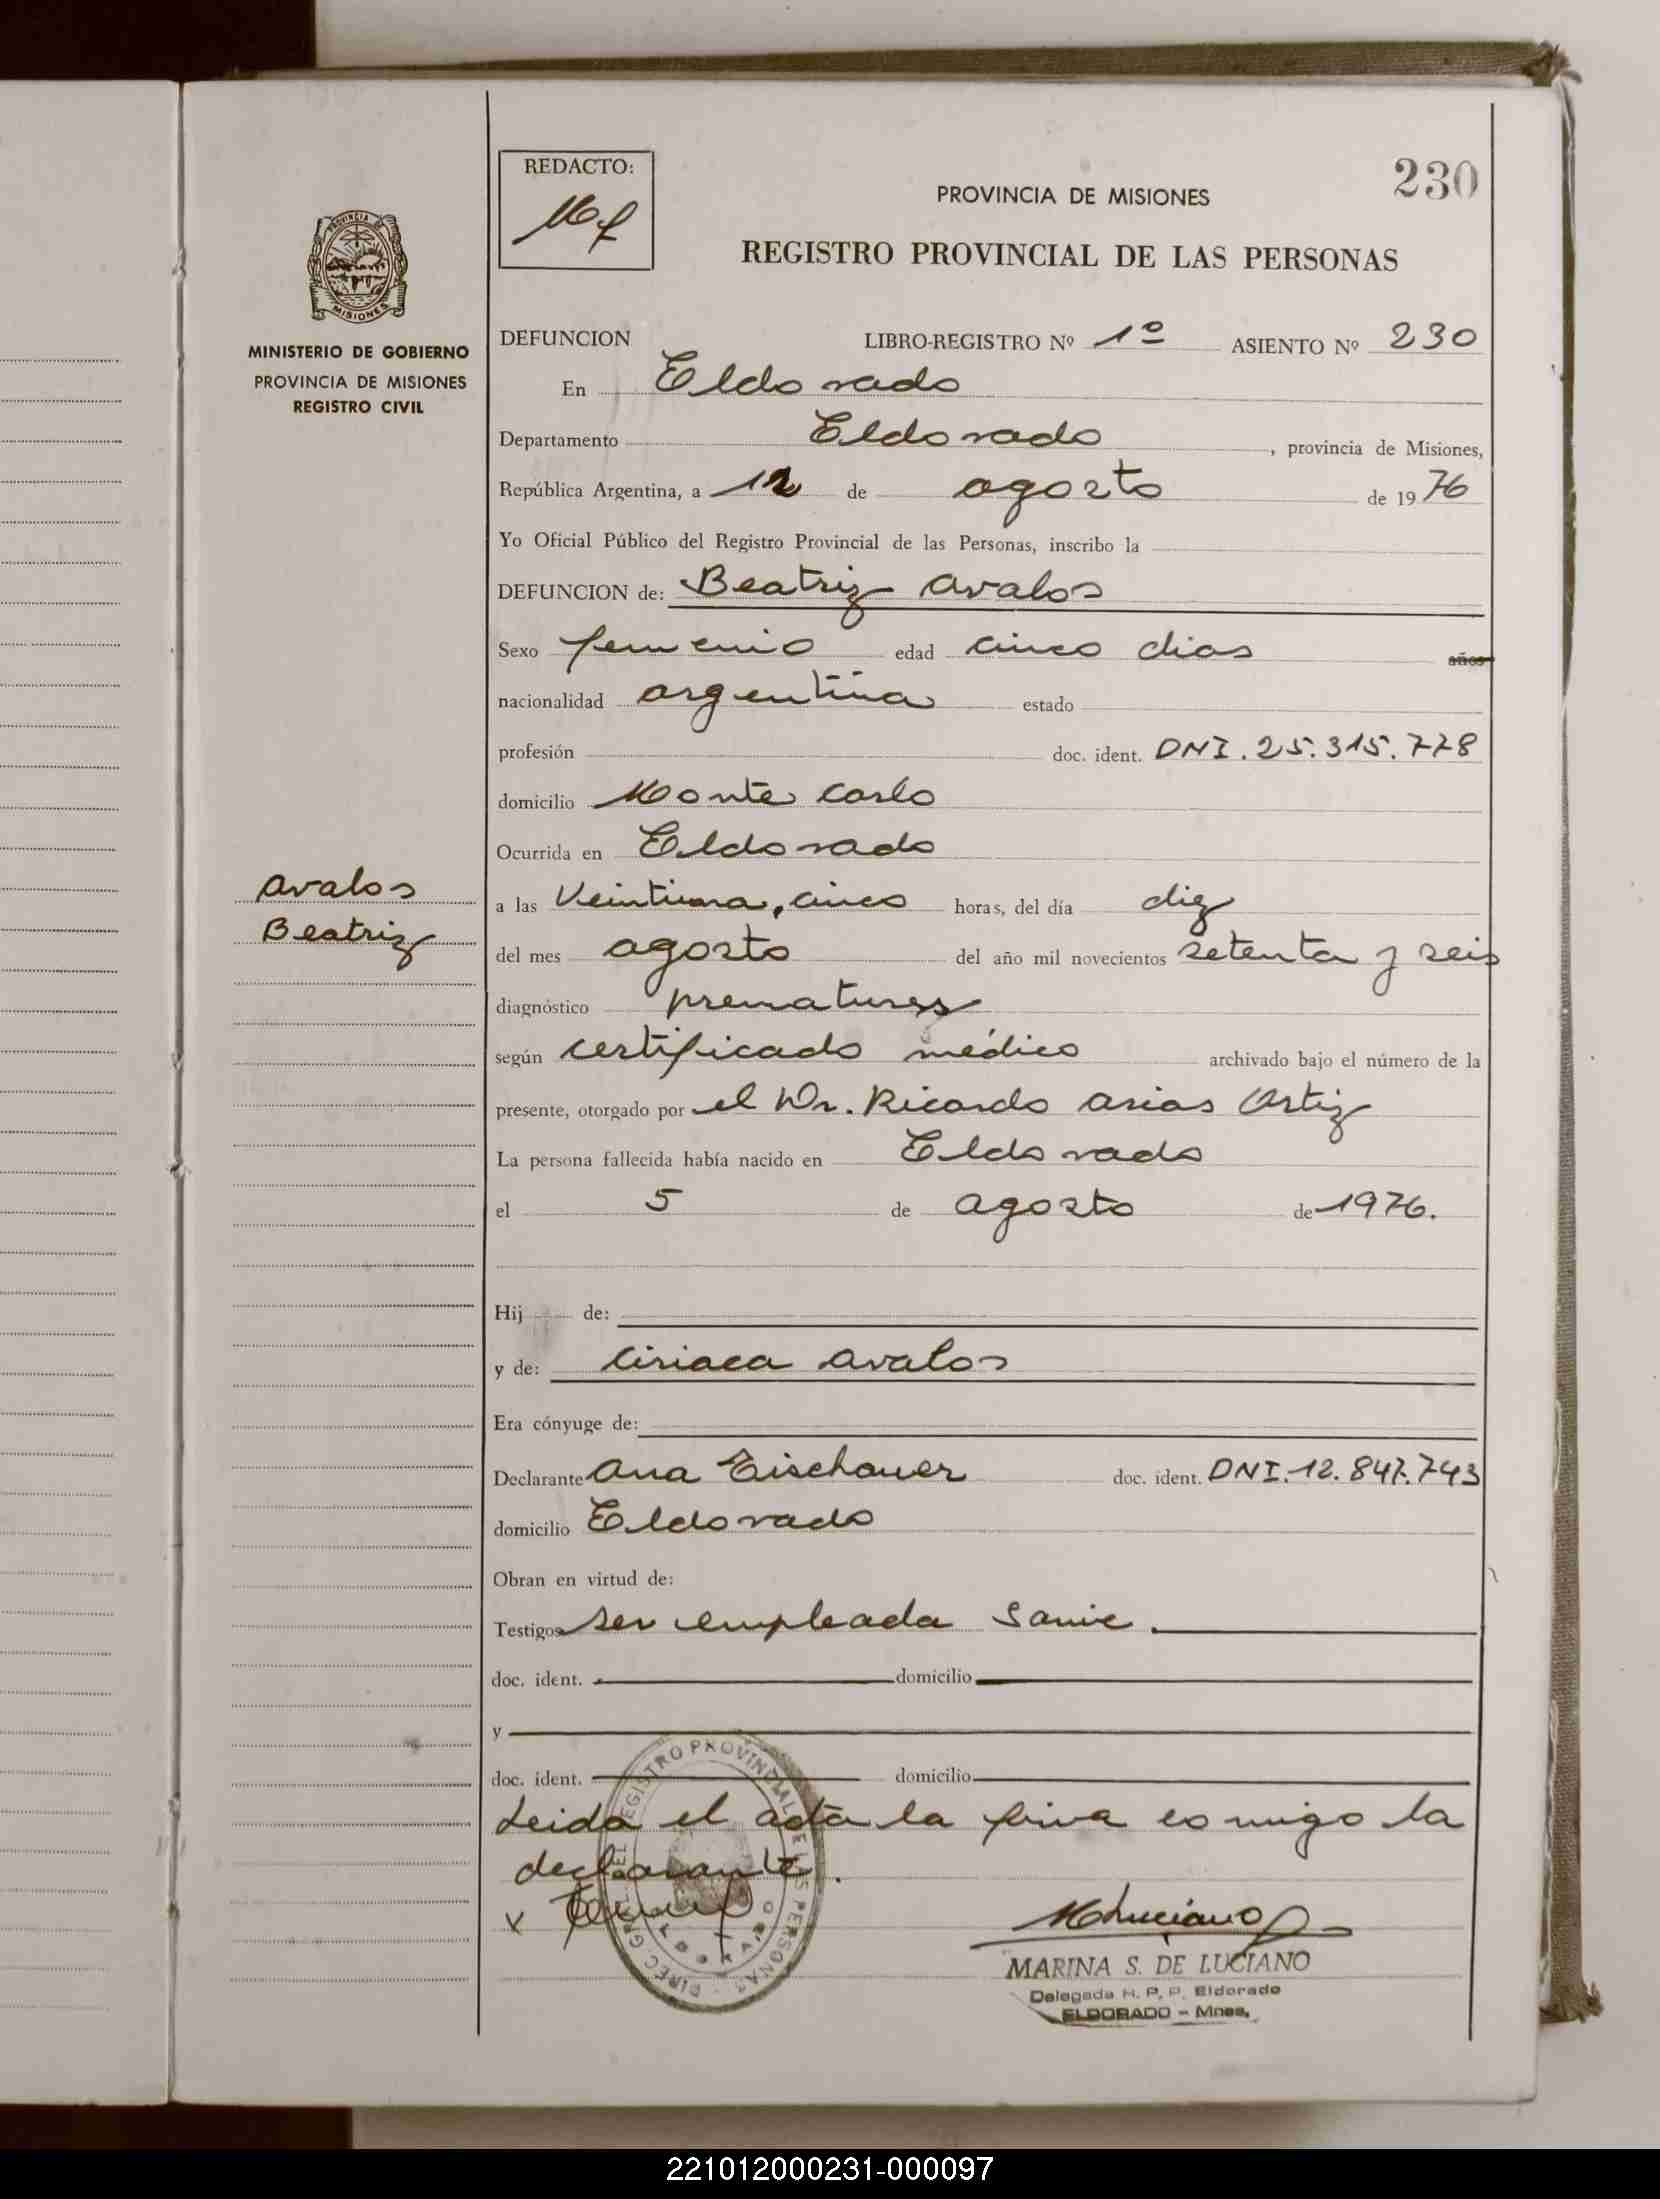 REDACTO:
230
PROVINCIA DE MISIONES
REGISTRO PROVINCIAL DE LAS PERSONAS
PROVINCIA DE
MISIONES
MINISTERIO DE GOBIERNO
PROVINCIA DE MISIONES
REGISTRO CIVIL
DEFUNCION LIBRO-REGISTRO Nº 1º ASIENTO Nº 230
En Eldorado
Departamento Eldorado, provincia de Misiones,
República Argentina, a 12 de agosto de 1976
Yo Oficial Público del Registro Provincial de las Personas, inscribo la
DEFUNCION de: Beatriz Avalos
Sexo femenio edad cinco dias años
nacionalidad argentina estado
profesión doc. ident. DNI. 25.315.778
domicilio Monte Carlo
Ocurrida en Eldorado
Avalos
Beatriz
a las Veintiuna, cinco horas, del día diez
del mes agosto del año mil novecientos setenta y seis
diagnóstico prematurez
según certificado médico archivado bajo el número de la
presente, otorgado por el Dr. Ricardo Arias Ortiz
La persona fallecida había nacido en Eldorado
el 5 de agosto de 1976.
Hij de:
y de: Ciriaca Avalos
Era cónyuge de:
Declarante Ana Eischauer doc. ident. DNI. 12.847.743
domicilio Eldorado
Obran en virtud de:
Testigos ser empleada Samic.
doc. ident. domicilio
y
doc. ident. domicilio
Leida el acta la firma comigo la
declarante.
DIREC. GRAL. DEL REGISTRO PROVINCIAL DE LAS PERSONAS
ELDORADO
MARINA S. DE LUCIANO
Delegada R. P. P. Eldorado
ELDORADO - Mnes.
221012000231-000097